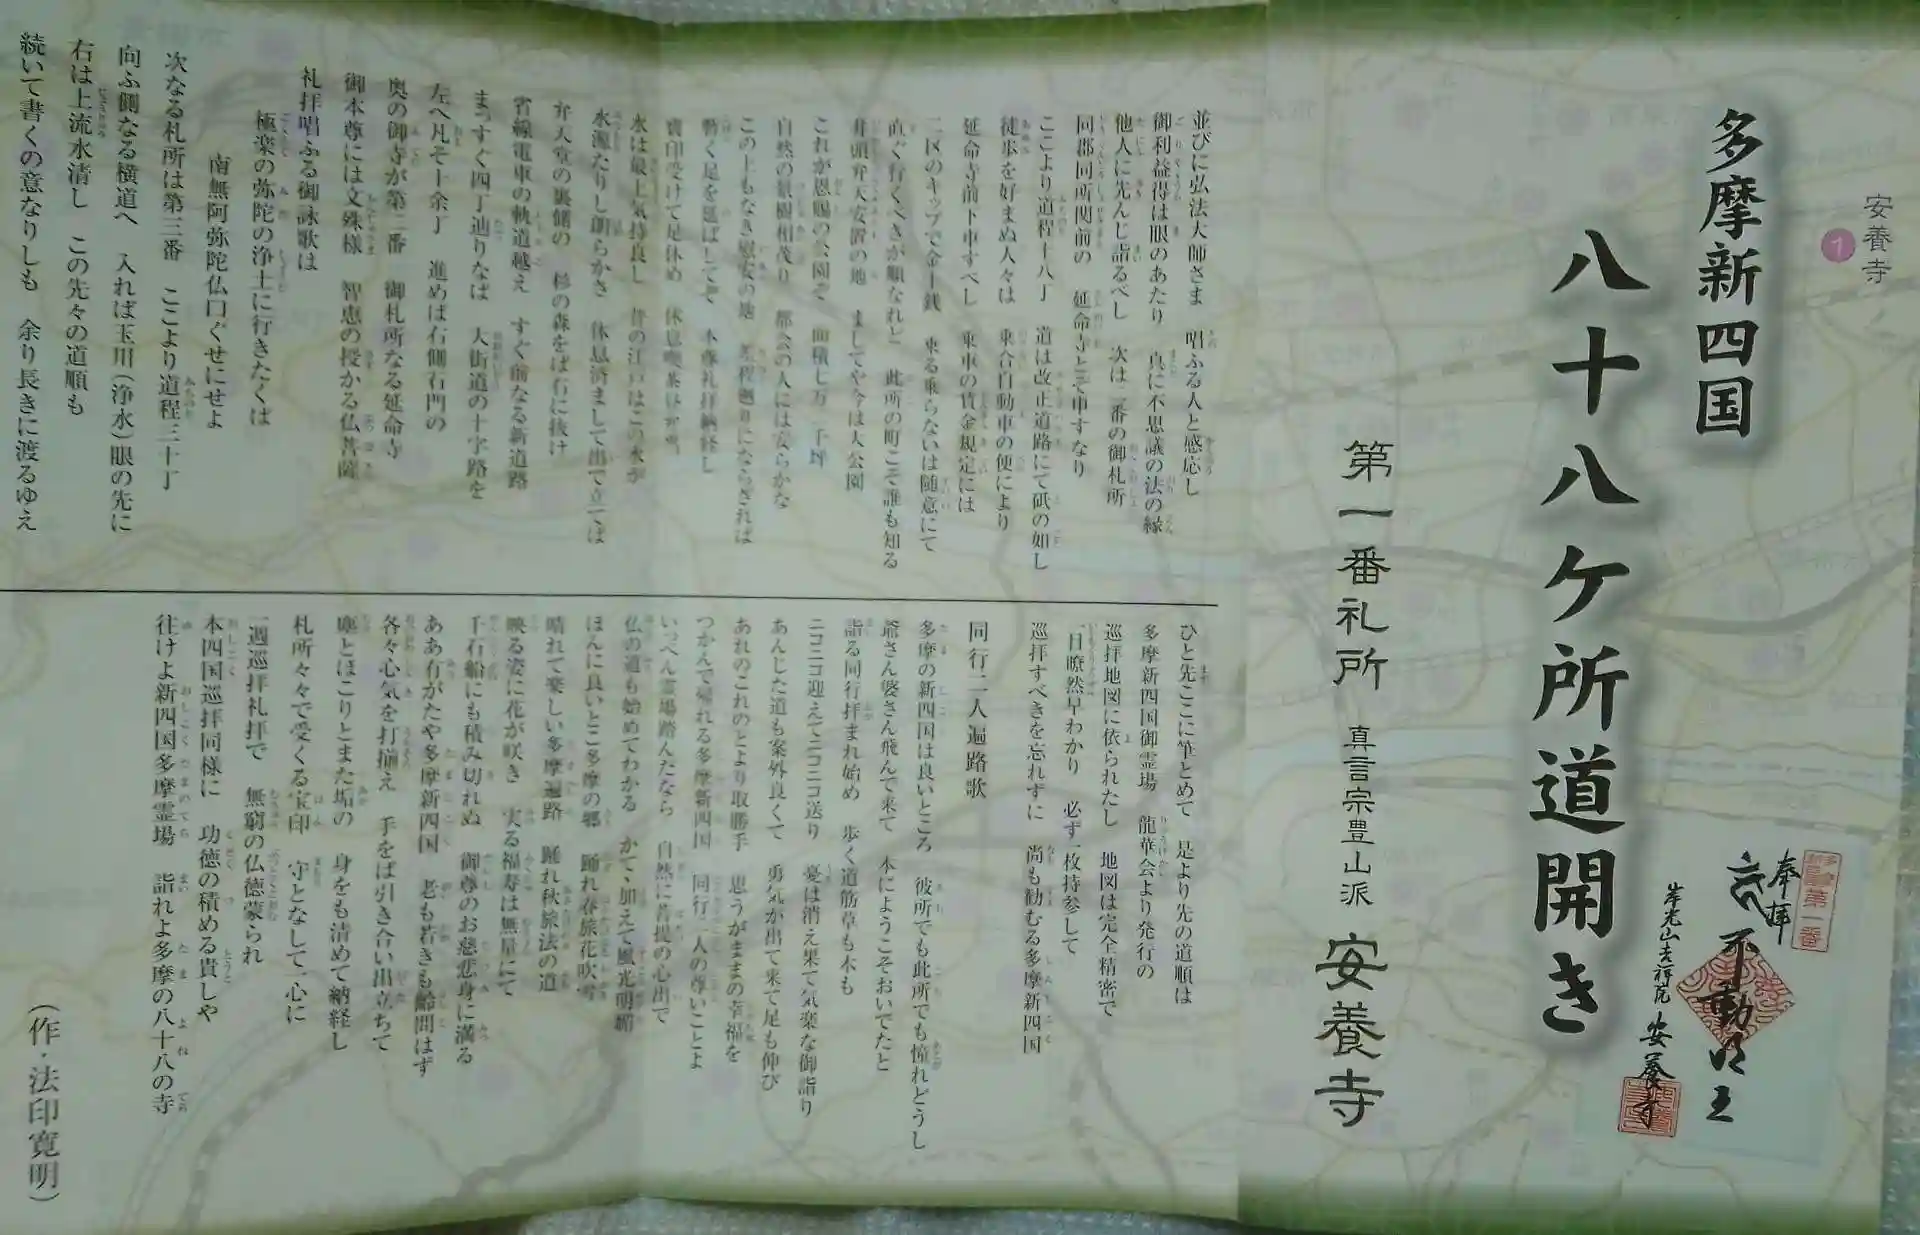 安養寺
1
多摩新四国
八十八ケ所道開き
奉拝
不動明王
岸光山吉祥院
安養寺
第一番札所 真言宗豊山派 安養寺
並びに弘法大師さま 唱ふる人と感応し
御利益得は眼のあたり 真に不思議の法の縁
他人に先んじ詣るべし 次は二番の御札所
同郡同所関前の 延命寺とぞ申すなり
ここより道程十八丁 道は改正道路にて砥の如し
徒歩を好まぬ人々は 乗合自動車の便により
延命寺前下車すべし 乗車の賃金規定には
二区のキップで金十銭 乗る乗らないは随意にて
直ぐ行くべきが順なれど 此所の町こそ誰も知る
井頭弁天安置の地 ましてや今は大公園
これが恩賜の公園ぞ 面積七万二千坪
自然の景樹相茂り 都会の人には安らかな
この上もなき慰安の地 差程廻りにならざれば
動く足を延ばしてぞ 本尊礼拝納経し
寶印受けて足休め 休息喫茶は
水は最上気持良し 昔の江戸はこの水が
水源たりし朗らかさ 休息済まして出で立てば
弁天堂の裏側の 杉の森をば右に抜け
省線電車の軌道越え すぐ前なる新道路
まっすぐ四丁辿りなば 大街道の十字路を
左へ凡そ十余丁 進めば右側石門の
奥の御寺が第二番 御札所なる延命寺
御本尊には文殊様 智恵の授かる仏菩薩
礼拝唱ふる御詠歌は
極楽の弥陀の浄土に行きたくは
南無阿弥陀仏口ぐせにせよ
次なる札所は第三番 ここより道程三十丁
向ふ側なる横道へ 入れば玉川(浄水)眼の先に
右は上流水清し この先々の道順も
続いて書くの意なりしも 余り長きに渡るゆえ
ひと先ここに筆とめて 是より先の道順は
多摩新四国御霊場 龍華会より発行の
巡拝地図に依られたし 地図は完全精密で
一目瞭然早わかり 必ず一枚持参して
巡拝すべきを忘れずに 尚も勧むる多摩新四国
同行二人遍路歌
多摩の新四国は良いところ 彼所でも此所でも憧れどうし
爺さん婆さん飛んで来て 本にようこそおいでたと
詣る同行拝まれ始め 歩く道筋草も木も
ニコニコ迎えてニコニコ送り 憂は消え果て気楽な御詣り
あんじた道も案外良くて 勇気が出て来て足も伸び
あれのこれのとより取勝手 思うがままの幸福を
つかんで帰れる多摩新四国 同行二人の尊いことよ
いっぺん霊場踏んだなら 自然に菩提の心出で
仏の道も始めてわかる かて、加えて風光明媚
ほんに良いとこ多摩の郷 踊れ春旅花吹雪
晴れて楽しい多摩遍路 踊れ秋旅法の道
映る姿に花が咲き 実る福寿は無量にて
千石船にも積み切れぬ 御尊のお慈悲身に満る
ああ有がたや多摩新四国 老も若きも齢問はず
各々心気を打揃え 手をば引き合い出立ちて
塵とほこりとまた垢の 身をも清めて納経し
札所々々で受くる宝印 守となして一心に
一週巡拝礼拝で 無窮の仏徳蒙られ
本四国巡拝同様に 功徳の積める貴しや
往けよ新四国多摩霊場 詣れよ多摩の八十八の寺
(作・法印寛明)